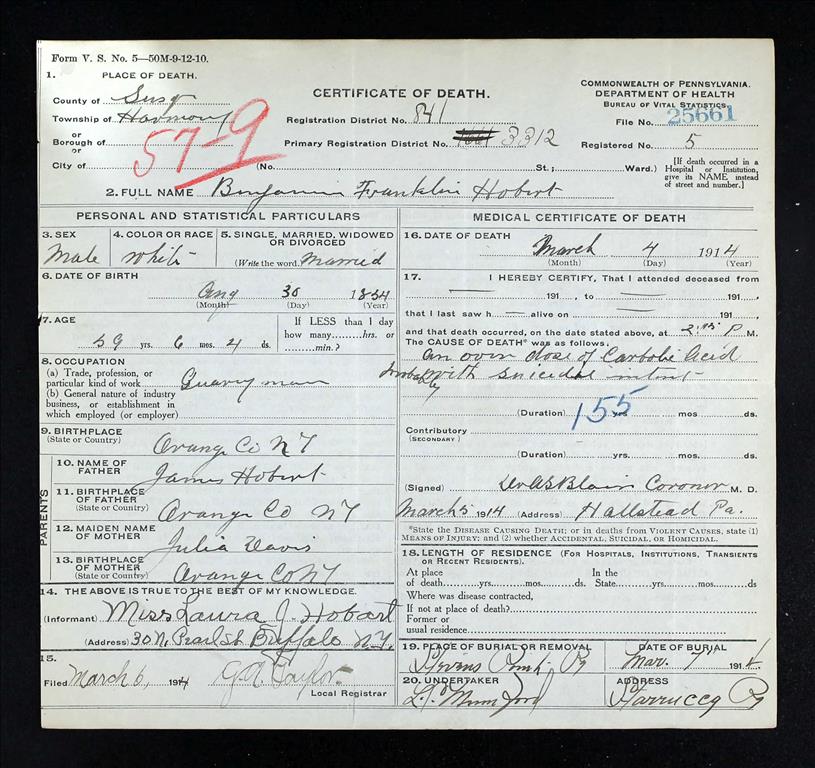 Form V. S. No. 5—50M-9-12-10.
1. PLACE OF DEATH.
County of Susq
Township of Harmony
or
Borough of
or
City of
57-9
CERTIFICATE OF DEATH.
Registration District No. 841
Primary Registration District No. 3312
(No. St.; Ward.)
COMMONWEALTH OF PENNSYLVANIA.
DEPARTMENT OF HEALTH
BUREAU OF VITAL STATISTICS.
File No. 25661
Registered No. 5
[If death occurred in a Hospital or Institution, give its NAME instead of street and number.]
2. FULL NAME Benjamin Franklin Hobert
PERSONAL AND STATISTICAL PARTICULARS
3. SEX
Male
4. COLOR OR RACE
White
5. SINGLE, MARRIED, WIDOWED OR DIVORCED
(Write the word.) Married
6. DATE OF BIRTH
Aug 30 1854
(Month) (Day) (Year)
7. AGE
59 yrs. 6 mos. 4 ds.
If LESS than 1 day how many hrs. or min.?
8. OCCUPATION
(a) Trade, profession, or particular kind of work Quarryman
(b) General nature of industry business, or establishment in which employed (or employer)
9. BIRTHPLACE
(State or Country) Orange Co NY
PARENTS
10. NAME OF FATHER James Hobert
11. BIRTHPLACE OF FATHER
(State or Country) Orange Co NY
12. MAIDEN NAME OF MOTHER Julia Davis
13. BIRTHPLACE OF MOTHER
(State or Country) Orange Co NY
14. THE ABOVE IS TRUE TO THE BEST OF MY KNOWLEDGE.
(Informant) Miss Laura J. Hobart
(Address) 30 N. Pearl St Buffalo N.Y.
15.
Filed March 6, 1914 G.A. Taylor
Local Registrar
MEDICAL CERTIFICATE OF DEATH
16. DATE OF DEATH
March 4 1914
(Month) (Day) (Year)
17. I HEREBY CERTIFY, That I attended deceased from
191 , to 191 ,
that I last saw h alive on 191 ,
and that death occurred, on the date stated above, at P M.
The CAUSE OF DEATH* was as follows:
An over dose of Carbolic Acid
Probably with suicidal intent
155
(Duration) yrs. mos ds.
Contributory
(SECONDARY)
(Duration) yrs. mos. ds.
(Signed) Dr AS Blair Coroner M. D.
March 5 1914 (Address) Hallstead Pa.
*State the DISEASE CAUSING DEATH; or in deaths from VIOLENT CAUSES, state (1) MEANS OF INJURY; and (2) whether ACCIDENTAL, SUICIDAL, OR HOMICIDAL.
18. LENGTH OF RESIDENCE (FOR HOSPITALS, INSTITUTIONS, TRANSIENTS OR RECENT RESIDENTS).
At place of death yrs. mos. ds. In the State yrs. mos. ds.
Where was disease contracted,
If not at place of death?
Former or
usual residence
19. PLACE OF BURIAL OR REMOVAL
Stevens Pa
DATE OF BURIAL
Mar. 7 1914
20. UNDERTAKER
L. P. Mumford
ADDRESS
Starrucca Pa